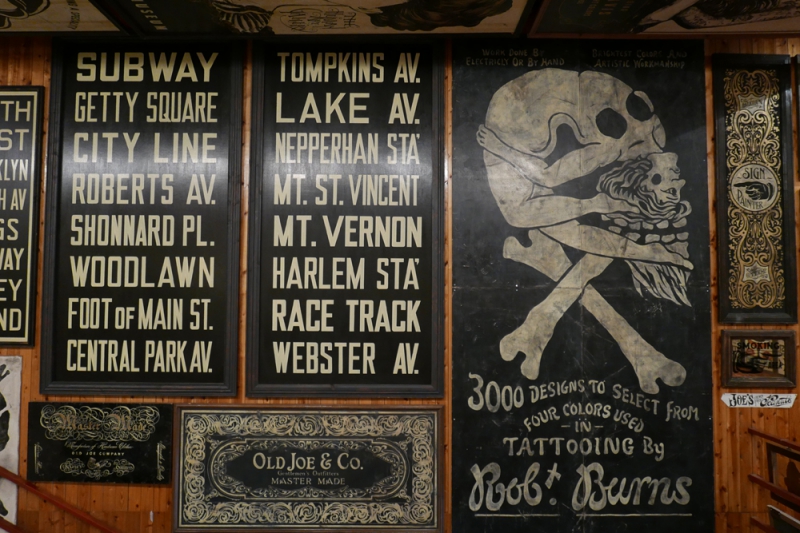 TH
ST
KLYN
H AV
GS
WAY
EY
ND
SUBWAY
GETTY SQUARE
CITY LINE
ROBERTS AV.
SHONNARD PL.
WOODLAWN
FOOT OF MAIN ST.
CENTRAL PARK AV.
TOMPKINS AV.
LAKE AV.
NEPPERHAN STA
MT. ST. VINCENT
MT. VERNON
HARLEM STA
RACE TRACK
WEBSTER AV.
WORK DONE BY
ELECTRICITY OR BY HAND
BRIGHTEST COLORS AND
ARTISTIC WORKMANSHIP
3000 DESIGNS TO SELECT FROM
FOUR COLORS USED
-IN-
TATTOOING By
Robt. Burns
SIGN
PAINTER
JOE'S
Master Made
OLD JOE COMPANY
OLD JOE & CO.
Gentlemen's Outfitters
MASTER MADE